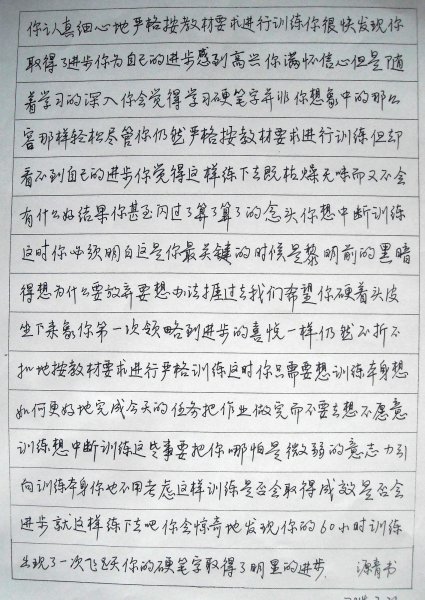 你认真细心地严格按教材要求进行训练你很快发现你
取得了进步你为自己的进步感到高兴你满怀信心但是随
着学习的深入你会觉得学习硬笔字并非你想象中的那么
容那样轻松尽管你仍然严格按教材要求进行训练但却
看不到自己的进步你觉得这样练下去既枯燥无味而又不会
有什么好结果你甚至闪过了算了算了的念头你想中断训练
这时你必须明白这是你最关键的时候是黎明前的黑暗
得想为什么要放弃要想办法捱过去我们希望你硬着头皮
坐下来象你第一次领略到进步的喜悦一样仍然不折不
扣地按教材要求进行严格训练这时你只需要想训练本身想
如何更好地完成今天的任务把作业做完而不要去想不愿意
训练想中断训练这些事要把你哪怕是微弱的意志力引
向训练本身你也不用考虑这样训练是否会取得成效是否会
进步就这样练下去吧你会惊奇地发现你的60小时训练
出现了一次飞跃你的硬笔字取得了明显的进步 源青书